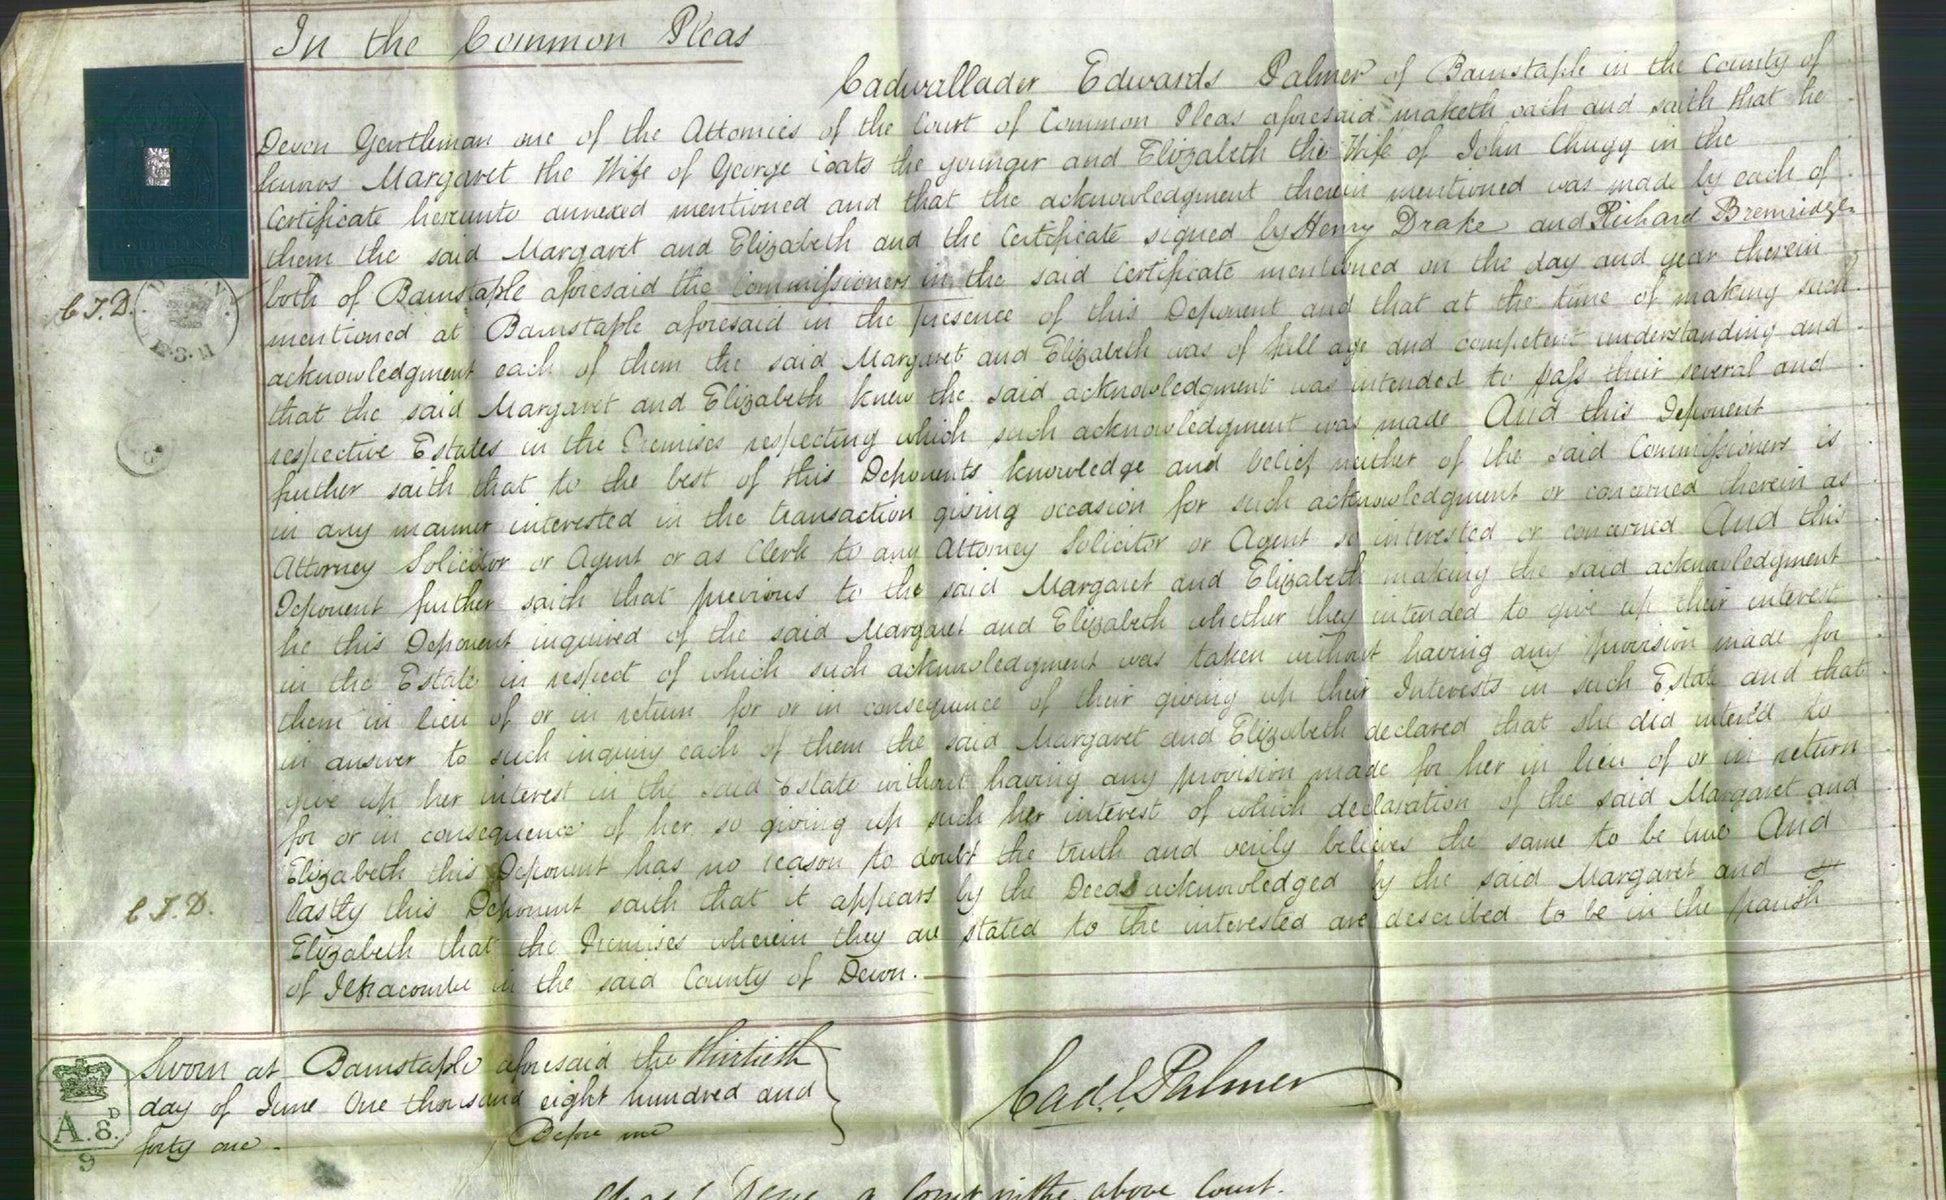 In the Common Pleas
Cadwallader Edwards Palmer of Barnstaple in the County of
Devon Gentleman one of the Attornies of the Court of Common Pleas aforesaid maketh oath and saith that he
knows Margaret the Wife of George Coats the younger and Elizabeth the Wife of John Chugg in the
Certificate hereunto annexed mentioned and that the acknowledgment therein mentioned was made by each of
them the said Margaret and Elizabeth and the Certificate signed by Henry Drake and Richard Bremridge
both of Barnstaple aforesaid the Commissioners in the said Certificate mentioned on the day and year therein
mentioned at Barnstaple aforesaid in the presence of this Deponent and that at the time of making such
acknowledgment each of them the said Margaret and Elizabeth was of full age and competent understanding and
that the said Margaret and Elizabeth knew the said acknowledgment was intended to pass their several and
respective Estates in the Premises respecting which such acknowledgment was made And this Deponent
further saith that to the best of this Deponents knowledge and belief neither of the said Commissioners is
in any manner interested in the transaction giving occasion for such acknowledgment or concerned therein as
Attorney Solicitor or Agent or as Clerk to any Attorney Solicitor or Agent so interested or concerned And this
Deponent further saith that previous to the said Margaret and Elizabeth making the said acknowledgment
he this Deponent inquired of the said Margaret and Elizabeth whether they intended to give up their interest
in the Estate in respect of which such acknowledgment was taken without having any provision made for
them in lieu of or in return for or in consequence of their giving up their Interests in such Estate and that
in answer to such inquiry each of them the said Margaret and Elizabeth declared that she did intend to
give up her interest in the said Estate without having any provision made for her in lieu of or in return
for or in consequence of her so giving up such her interest of which declaration of the said Margaret and
Elizabeth this Deponent has no reason to doubt the truth and verily believes the same to be true And
lastly this Deponent saith that it appears by the Deeds acknowledged by the said Margaret and
Elizabeth that the Premises wherein they are stated to the interested are described to be in the parish
of Ilfracombe in the said County of Devon.
C I. D.
12.3.41
C I. D.
Sworn at Barnstaple aforesaid the thirtieth
day of June One thousand eight hundred and
forty one
Before me
Cad. E. Palmer
A.D 8.
9
a Com in the above Court.